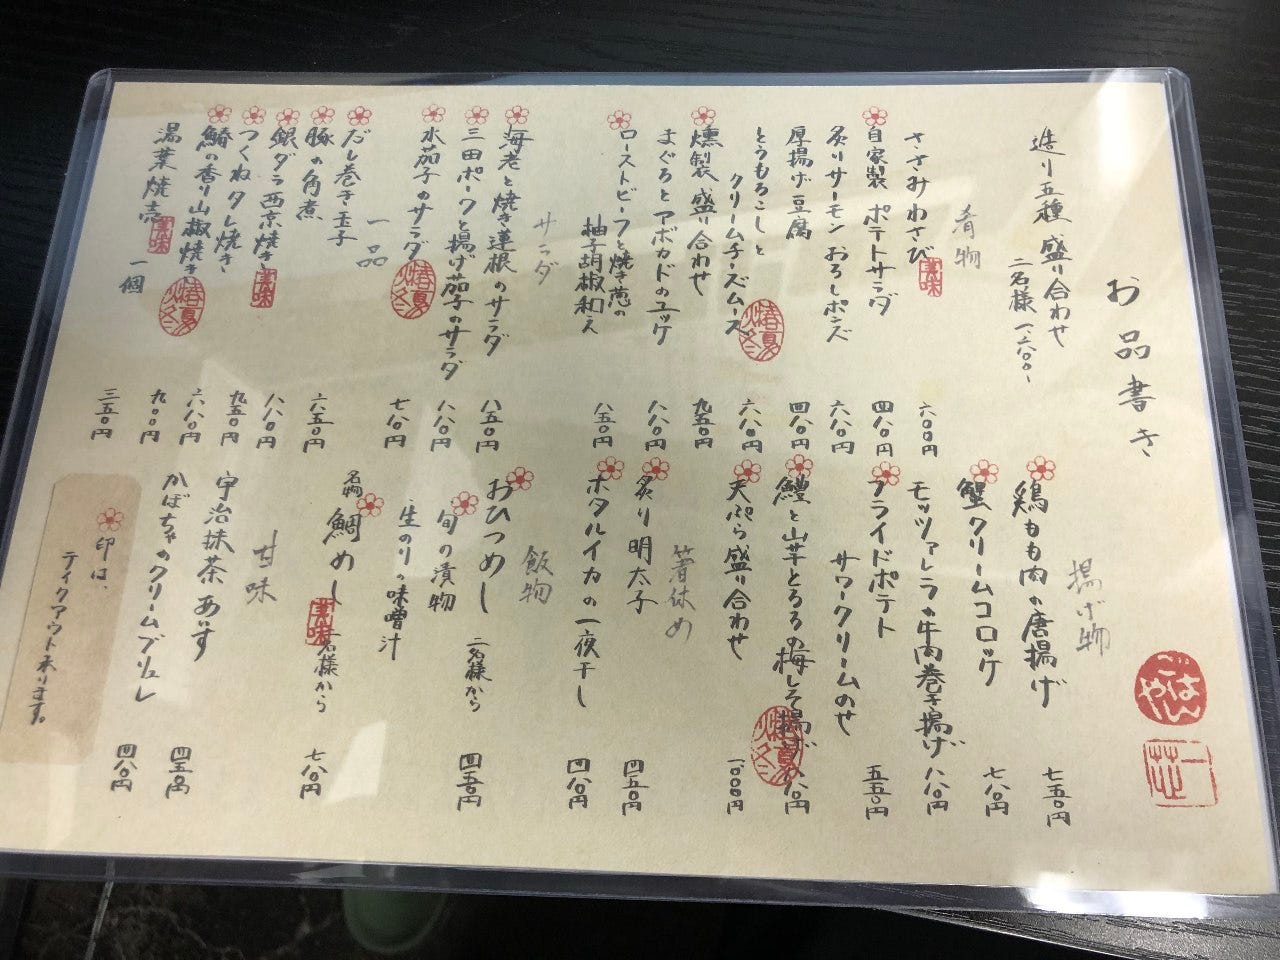 お品書き
ごはんや
一芯
造り五種盛り合わせ
二名様 一、二六〇〇〜
肴物
ささみわさび
六〇〇円
自家製 ポテトサラダ
四八〇円
炙りサーモン おろしポンズ
六八〇円
厚揚げ豆腐
四八〇円
とうもろこしと
クリームチーズムース
六八〇円
燻製 盛り合わせ
九五〇円
まぐろとアボカドのユッケ
八八〇円
ローストビーフと焼き葱の
柚子胡椒和え
八五〇円
サラダ
海老と焼き蓮根のサラダ
八五〇円
三田ポークと揚げ茄子のサラダ
八八〇円
水茄子のサラダ
七八〇円
一品
だし巻き玉子
六五〇円
豚の角煮
八八〇円
銀ダラ西京焼き
美味
九五〇円
つくねタレ焼き
六八〇円
鰆の香り山椒焼き
九〇〇円
湯葉焼売
美味
一個
三五〇円
揚げ物
鶏もも肉の唐揚げ
七五〇円
蟹クリームコロッケ
七八〇円
モッツァレラの牛肉巻き揚げ
八八〇円
フライドポテト
サワークリームのせ
五五〇円
鱧と山芋とろろの梅しそ揚げ
八八〇円
天ぷら盛り合わせ
一〇〇〇円
箸休め
炙り明太子
四五〇円
ホタルイカの一夜干し
四八〇円
飯物
おひつめし 二名様から
四五〇円
旬の漬物
生のりの味噌汁
名物 鯛めし 二名様から
美味
七八〇円
甘味
宇治抹茶あいす
四五〇円
かぼちゃのクリームブリュレ
四八〇円
印は、
テイクアウト承ります。